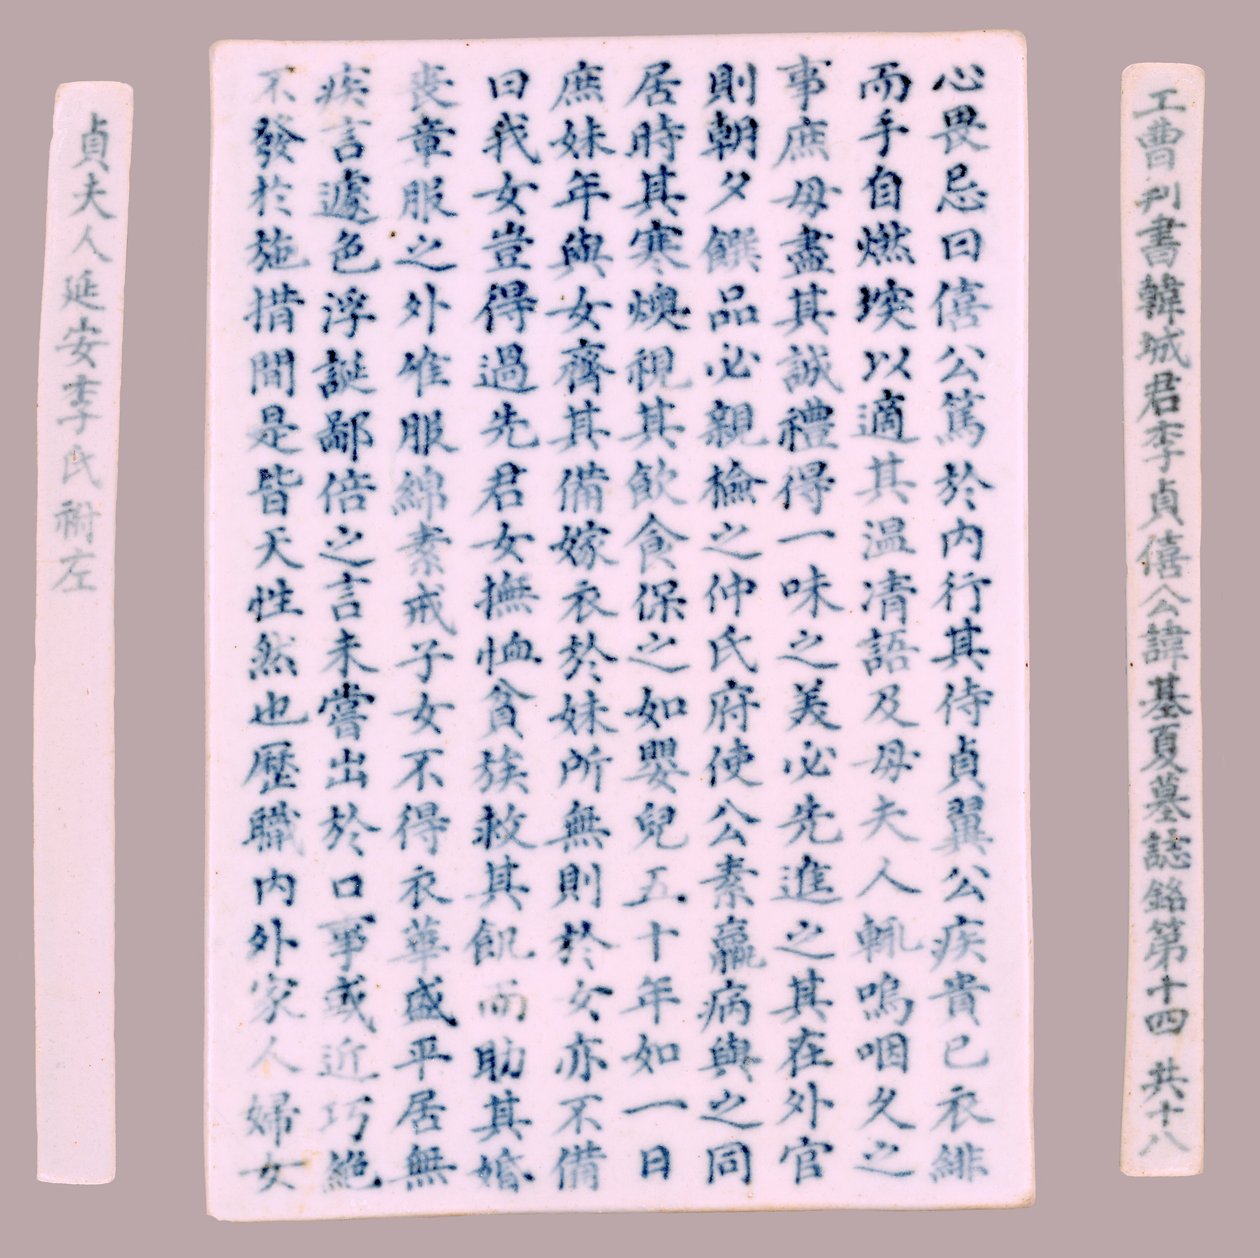 工曹判書韓城君李貞僖公諱基夏墓誌銘第十四 共十八
心畏忌曰僖公篤於內行其侍貞翼公疾貴已衣緋
而手自燃堗以適其温凊語及母夫人輒嗚咽久之
事庶母盡其誠禮得一味之美必先進之其在外官
則朝夕饌品必親檢之仲氏府使公素羸病與之同
居時其寒燠視其飮食保之如嬰兒五十年如一日
庶妹年與女齊其備嫁衣於妹所無則於女亦不備
曰我女豈得過先君女撫恤貧族救其飢而助其婚
喪章服之外唯服綿素戒子女不得衣華盛平居無
疾言遽色浮誕鄙倍之言未嘗出於口事或近巧絶
不發於施措間是皆天性然也歷職內外家人婦女
貞夫人延安李氏祔左